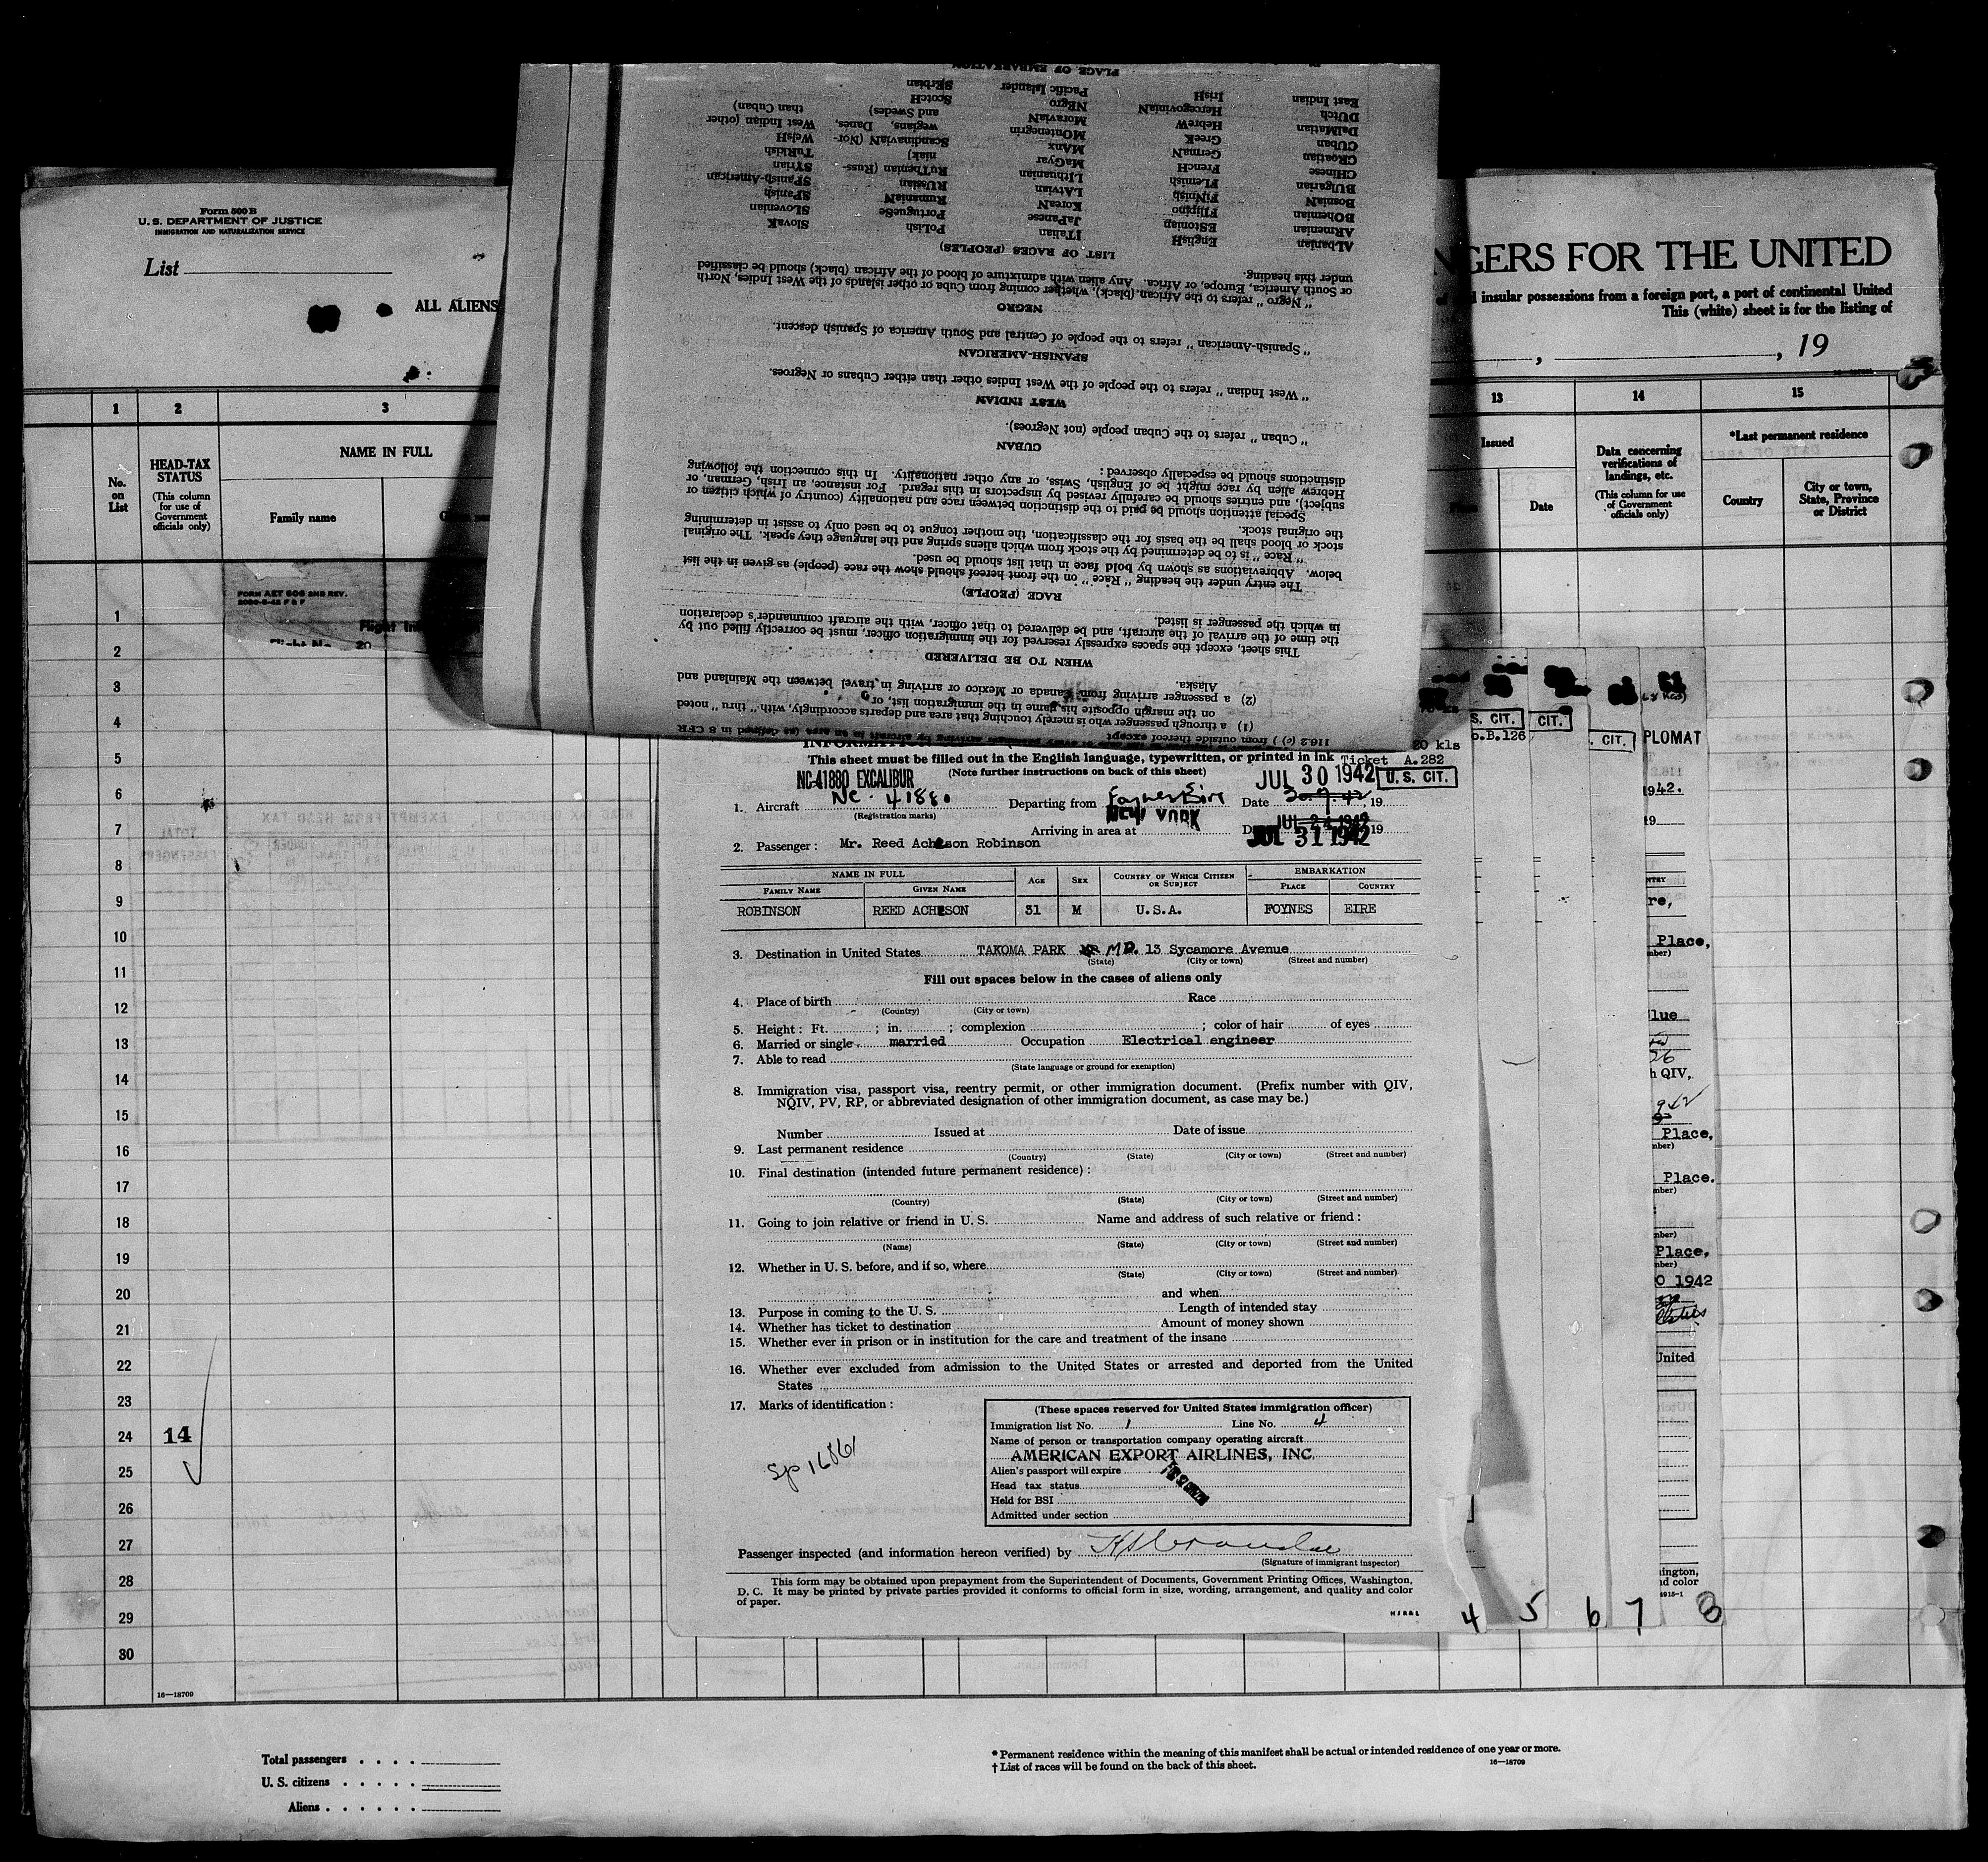 Form 500 B
U. S. DEPARTMENT OF JUSTICE
IMMIGRATION AND NATURALIZATION SERVICE
List
ALL ALIENS
NGERS FOR THE UNITED
insular possessions from a foreign port, a port of continental United
This (white) sheet is for the listing of
, , 19
1 2 3 13 14 15
No.
on
List
HEAD-TAX
STATUS
(This column
for use of
Government
officials only)
NAME IN FULL
Family name
Issued
Date
Data concerning
verifications of
landings, etc.
(This column for use
of Government
officials only)
*Last permanent residence
Country
City or town,
State, Province
or District
FORM AET 606 2ND REV.
Flight
20
1
2
3
4
5
6
7
8
9
10
11
12
13
14
15
16
17
18
19
20
21
22
23
24 14
25
26
27
28
29
30
16—18709
Total passengers . . . .
U. S. citizens . . . . .
Aliens . . . . . .
* Permanent residence within the meaning of this manifest shall be actual or intended residence of one year or more.
† List of races will be found on the back of this sheet.
16—18709
116.2 (c) ) from outside thereof except
(1) a through passenger who is merely touching that area and departs accordingly, with "thru" noted
on the margin opposite his name in the immigration list, or
(2) a passenger arriving from Canada or Mexico or arriving in travel between the Mainland and
Alaska.
WHEN TO BE DELIVERED
This sheet, except the spaces expressly reserved for the immigration officer, must be correctly filled out by
the time of the arrival of the aircraft, and be delivered to that officer, with the aircraft commander's declaration
in which the passenger is listed.
RACE (PEOPLE)
The entry under the heading "Race" on the front hereof should show the race (people) as given in the list
below. Abbreviations as shown by bold face in that list should be used.
"Race" is to be determined by the stock from which aliens spring and the language they speak. The original
stock or blood shall be the basis for the classification, the mother tongue to be used only to assist in determining
the original stock.
Special attention should be paid to the distinction between race and nationality (country of which citizen or
subject), and entries should be carefully revised by inspectors in this regard. For instance, an Irish, German, or
Hebrew alien by race might be of English, Swiss, or any other nationality. In this connection the following
distinctions should be especially observed:
CUBAN
"Cuban" refers to the Cuban people (not Negroes).
WEST INDIAN
"West Indian" refers to the people of the West Indies other than either Cubans or Negroes.
SPANISH-AMERICAN
"Spanish-American" refers to the people of Central and South America of Spanish descent.
NEGRO
"Negro" refers to the African (black), whether coming from Cuba or other islands of the West Indies, North
or South America, Europe, or Africa. Any alien with admixture of blood of the African (black) should be classified
under this heading.
LIST OF RACES (PEOPLES)
ALbanian EnglisH ITalian PoLish SlovaK
ARmenian EStonian JaPanese PortugueSe SLovenian
BOhemian FIlipino KoreaN RumaniaN SPanish
BosniaN FiNnish LAtvian RUssian SPanish-American
BUlgarian FLemish LIthuanian RuThenian (Russ- SYrian
CHinese FrenCH MaGyar niak) TuRkish
CRoatian GermaN MAnx ScandinaviaN (Nor- WelsH
CUban GreeK MOntenegrin wegians, Danes, West Indian (other
DalMatian HebreW MoraviaN and Swedes) than Cuban)
DUtch HercegoviniaN NEgro ScotcH
East Indian IrisH Pacific Islander SErbian
PLACE OF EMBARKATION
20 kls
This sheet must be filled out in the English language, typewritten, or printed in ink
Ticket A.282
NC-41880 EXCALIBUR
(Note further instructions on back of this sheet)
JUL 30 1942
U. S. CIT.
1. Aircraft NC. 41880 Departing from Foynes Eire Date 20.7.42, 19
(Registration marks)
NEW YORK
Arriving in area at 19
JUL 24 1942
JUL 31 1942
2. Passenger: Mr. Reed Acheson Robinson
NAME IN FULL
FAMILY NAME GIVEN NAME AGE SEX COUNTRY OF WHICH CITIZEN OR SUBJECT
EMBARKATION
PLACE COUNTRY
ROBINSON REED ACHESON 31 M U.S.A. FOYNES EIRE
3. Destination in United States TAKOMA PARK MD. 13 Sycamore Avenue
(State) (City or town) (Street and number)
Fill out spaces below in the cases of aliens only
4. Place of birth Race
(Country) (City or town)
5. Height: Ft. ; in. ; complexion ; color of hair of eyes
6. Married or single married Occupation Electrical engineer
7. Able to read
(State language or ground for exemption)
8. Immigration visa, passport visa, reentry permit, or other immigration document. (Prefix number with QIV,
NQIV, PV, RP, or abbreviated designation of other immigration document, as case may be.)
Number Issued at Date of issue
9. Last permanent residence
(Country) (State) (City or town) (Street and number)
10. Final destination (intended future permanent residence):
(Country) (State) (City or town) (Street and number)
11. Going to join relative or friend in U. S. Name and address of such relative or friend:
(Name) (State) (City or town) (Street and number)
12. Whether in U. S. before, and if so, where
(State) (City or town) (Street and number)
and when
13. Purpose in coming to the U. S. Length of intended stay
14. Whether has ticket to destination Amount of money shown
15. Whether ever in prison or in institution for the care and treatment of the insane
16. Whether ever excluded from admission to the United States or arrested and deported from the United
States
17. Marks of identification:
(These spaces reserved for United States immigration officer)
Immigration list No. 1 Line No. 4
Name of person or transportation company operating aircraft
AMERICAN EXPORT AIRLINES, INC.
Alien's passport will expire
Head tax status
Held for BSI
Admitted under section
Sp 16861
Passenger inspected (and information hereon verified) by
(Signature of immigrant inspector)
This form may be obtained upon prepayment from the Superintendent of Documents, Government Printing Offices, Washington,
D. C. It may be printed by private parties provided it conforms to official form in size, wording, arrangement, and quality and color
of paper.
4 5 6 7 8
S. CIT.
CIT.
. CIT.
PLOMAT
o.B.126
1942.
19
re,
Place,
lue
26
h QIV,
Place,
Place.
Place,
0 1942
United
ington,
nd color